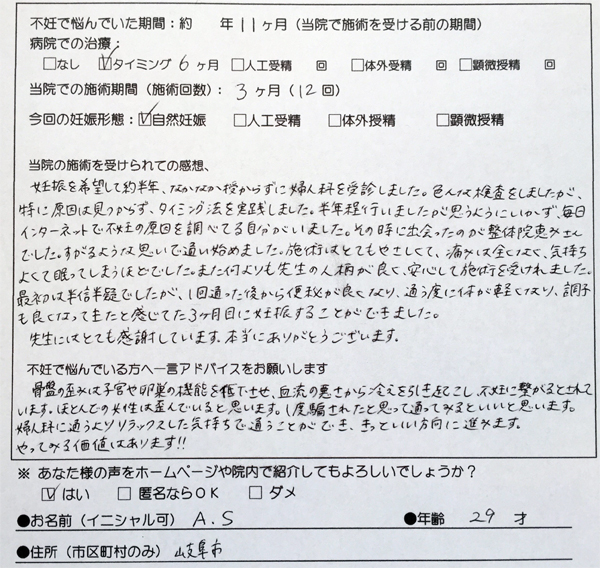 不妊で悩んでいた期間：約　　年 11ヶ月（当院で施術を受ける前の期間）
病院での治療：
□なし ☑タイミング 6ヶ月 □人工受精　回 □体外受精　回 □顕微授精　回
当院での施術期間（施術回数）： 3ヶ月（12回）
今回の妊娠形態：☑自然妊娠 □人工受精 □体外授精 □顕微授精
当院の施術を受けられての感想、
妊娠を希望して約半年、なかなか授からずに婦人科を受診しました。色んな検査をしましたが、
特に原因は見つからず、タイミング法を実践しました。半年程行いましたが思うようにいかず、毎日
インターネットで不妊の原因を調べてる自分がいました。その時に出会ったのが整体院恵みさん
でした。すがるような思いで通い始めました。施術はとてもやさしくて、痛みは全くなく、気持ち
よくて眠ってしまうほどでした。また何よりも先生の人柄が良く、安心して施術を受けれました。
最初は半信半疑でしたが、1回通った後から便秘が良くなり、通う度に体が軽くなり、調子
も良くなってきたと感じてた3ヶ月目に妊娠することができました。
先生にはとても感謝しています。本当にありがとうございます。
不妊で悩んでいる方へ一言アドバイスをお願いします
骨盤の歪みは子宮や卵巣の機能を低下させ、血流の悪さから冷えを引き起こし、不妊に繋がるとされて
います。ほとんどの女性は歪んでいると思います。1度騙されたと思って通ってみるといいと思います。
婦人科に通うよりリラックスした気持ちで通うことができ、きっといい方向に進みます。
やってみる価値はあります!!
※ あなた様の声をホームページや院内で紹介してもよろしいでしょうか？
☑はい □匿名ならOK □ダメ
●お名前（イニシャル可） A.S ●年齢 29 才
●住所（市区町村のみ） 岐阜市